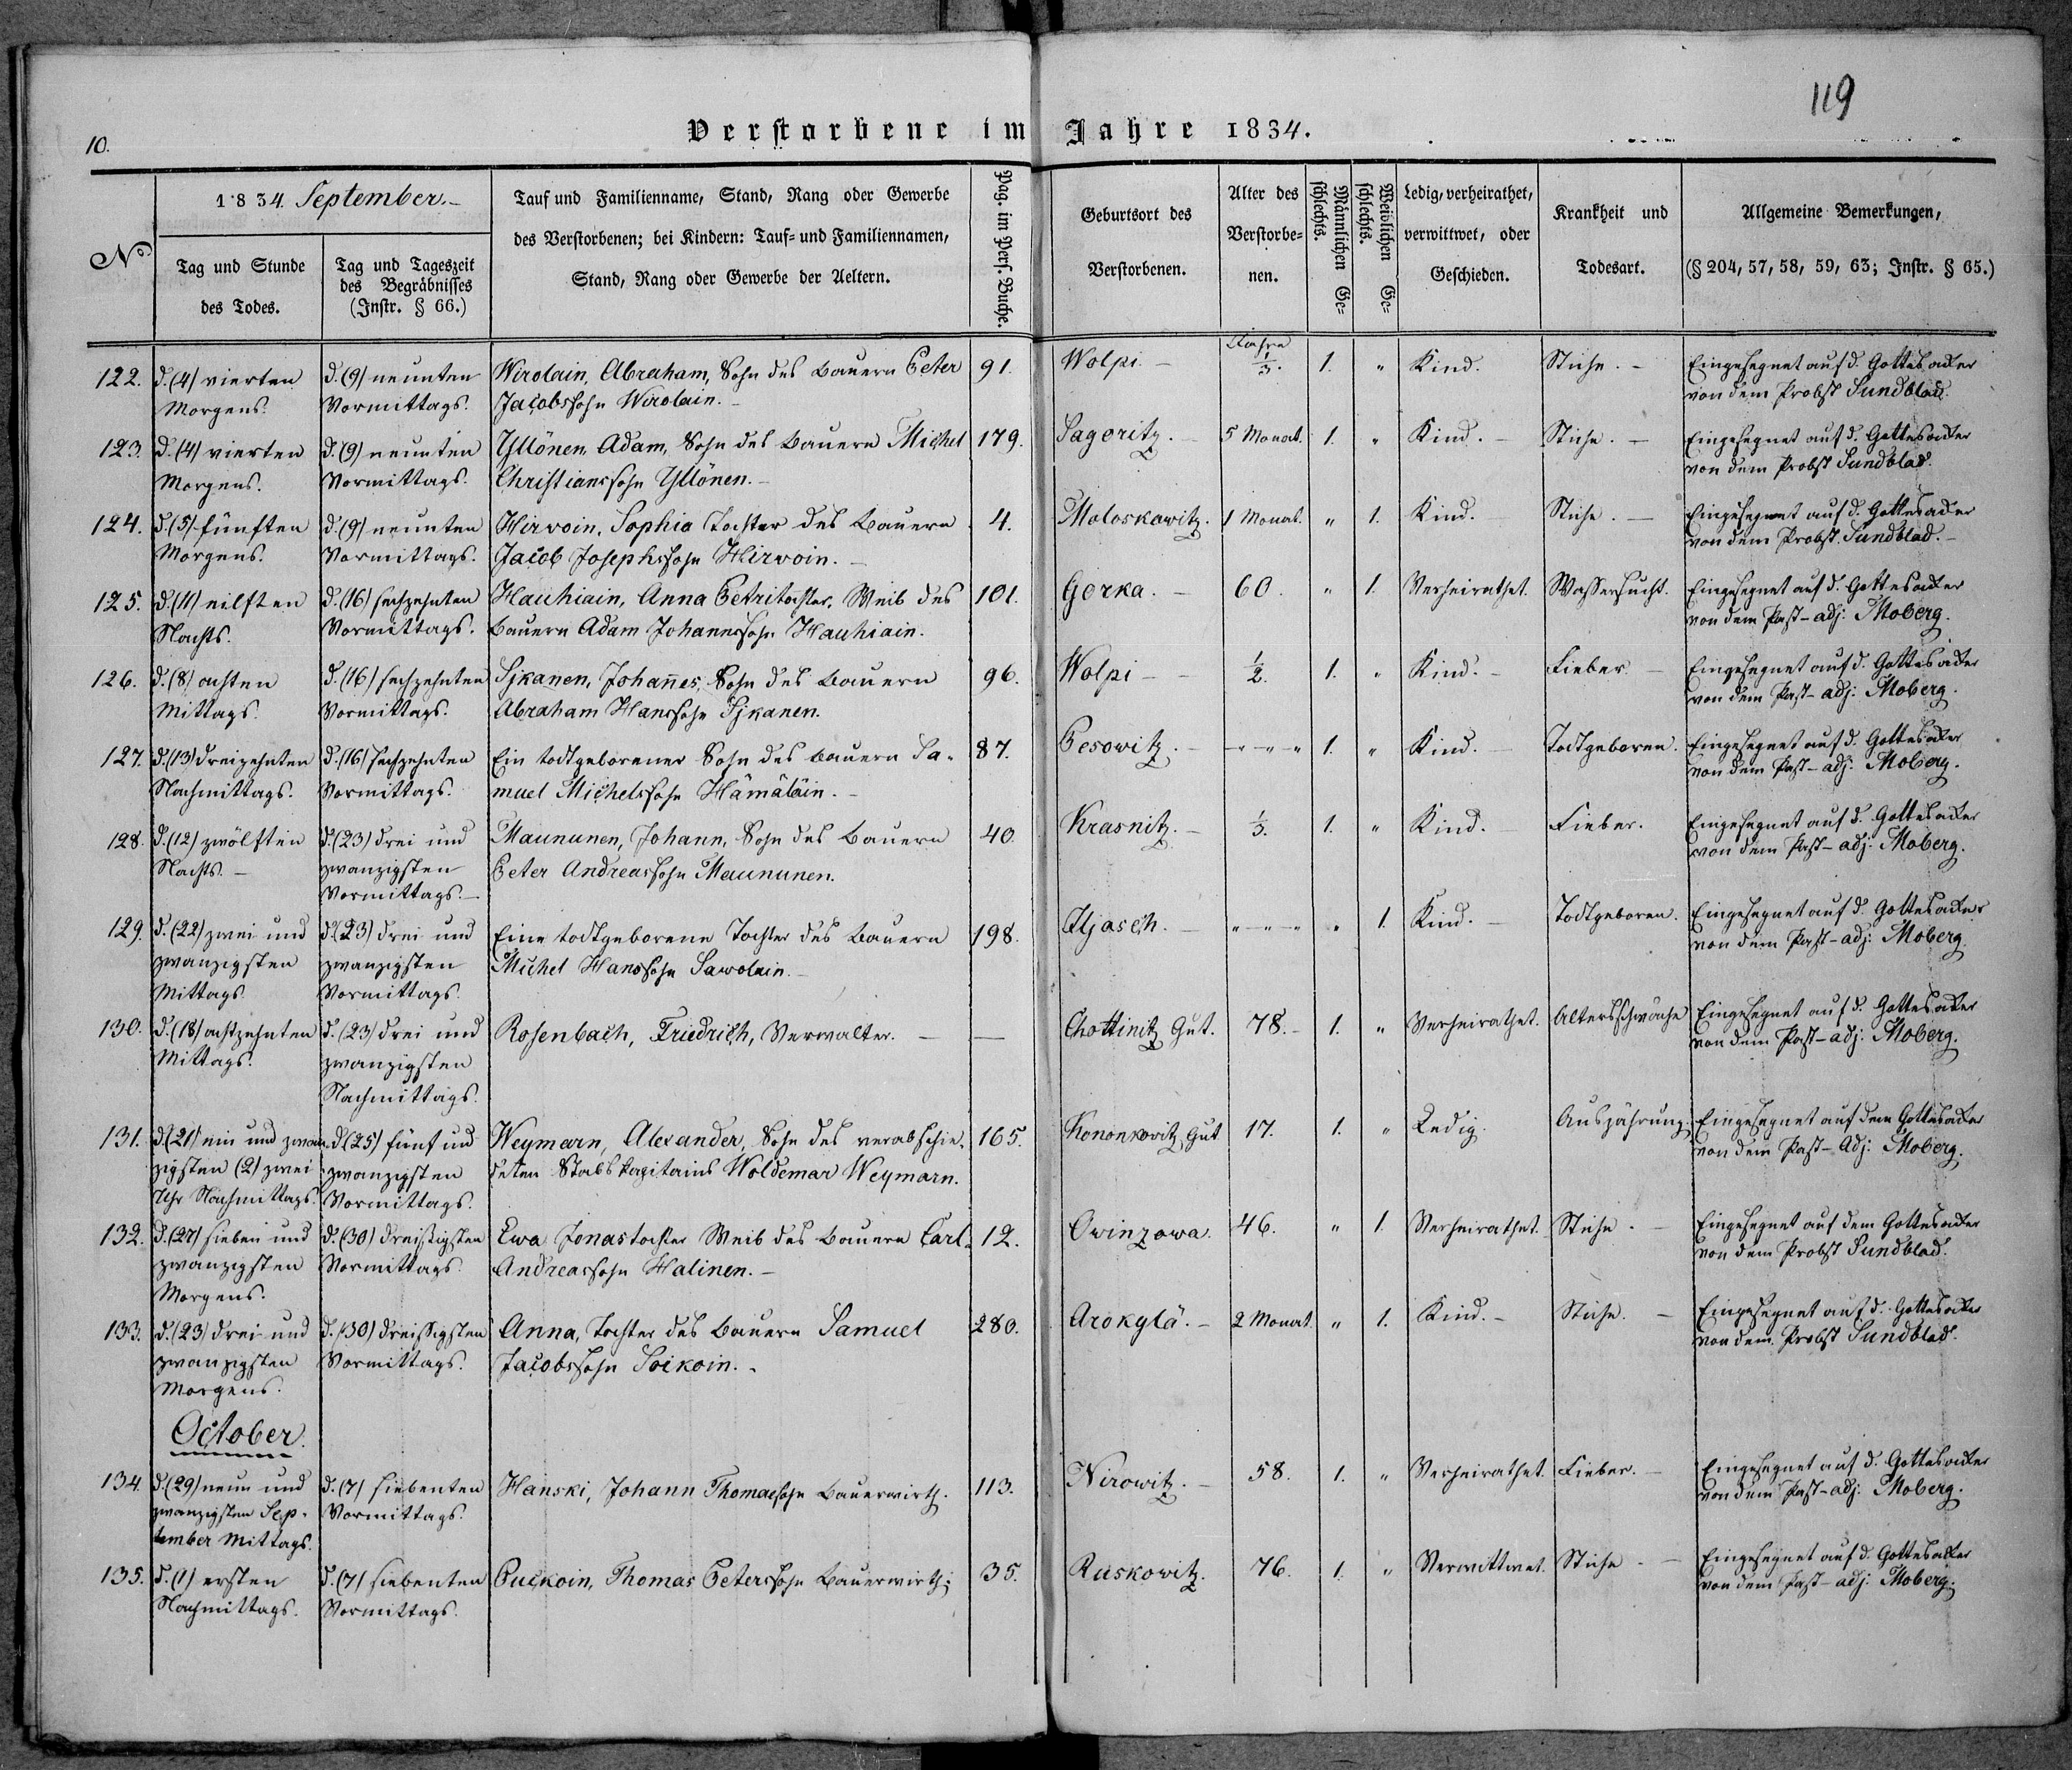 119
10.
Verstorbene im Jahre 1834.
No
1834. September.
Tag und Stunde des Todes.
Tag und Tageszeit des Begräbnisses (Instr. § 66.)
Tauf und Familienname, Stand, Rang oder Gewerbe
des Verstorbenen; bei Kindern: Tauf- und Familiennamen,
Stand, Rang oder Gewerbe der Aeltern.
Pag. im Pers. Buche.
Geburtsort des Verstorbenen.
Alter des Verstorbenen.
Männlichen Geschlechts.
Weiblichen Geschlechts.
Ledig, verheirathet, verwittwet, oder Geschieden.
Krankheit und Todesart.
Allgemeine Bemerkungen,
(§ 204, 57, 58, 59, 63; Instr. § 65.)
122. d. (4) vierten d. (9) neunten Wirolain, Abraham, Sohn des Bauern Peter 91. Wolpi. – Jahre 1/3. 1. " Kind. Stiche. – Eingesegnet auf d. Gottesacker
Morgens. Vormittags. Jacobssohn Wirolain. – von dem Probst Sundblad.
123. d. (4) vierten d. (9) neunten Yllönen, Adam, Sohn des Bauern Michel 179. Sagoritz. 5 Monat. 1. " Kind. – Stiche. – Eingesegnet auf d. Gottesacker
Morgens. Vormittags. Christianssohn Yllönen. – von dem Probst Sundblad.
124. d. (5) fünften d. (9) neunten Hirvoin, Sophia Tochter des Bauern 4. Moloskowitz. 1 Monat. " 1. Kind. Stiche. – Eingesegnet auf d. Gottesacker
Morgens. Vormittags. Jacob Josephssohn Hirvoin. – von dem Probst Sundblad. –
125. d. (11) eilften d. (16) sechzehnten Hauhiain, Anna Petritochter, Weib des 101. Gorka. – 60. " 1. Verheirathet. Wassersucht. Eingesegnet auf d. Gottesacker
Nachts. Vormittags. Bauern Adam Johannssohn Hauhiain. von dem Past-adj: Moberg.
126. d. (8) achten d. (16) sechzehnten Sjkanen, Johannes, Sohn des Bauern 96. Wolpi – – 1/2. 1. " Kind. – Fieber. – Eingesegnet auf d. Gottesacker
Mittags. Vormittags. Abraham Hanssohn Sjkanen. von dem Past-adj: Moberg.
127. d. (13) dreizehnten d. (16) sechzehnten Ein todtgeborener Sohn des Bauern Sa- 87. Pesowitz. – "–"–" 1. " Kind. – Todtgeboren. Eingesegnet auf d. Gottesacker
Nachmittags. Vormittags. muel Michelssohn Hämäläin. – von dem Past-adj: Moberg.
128. d. (12) zwölften d. (23) drei und Maununen, Johann, Sohn des Bauern 40. Krasnitz. – 1/3. 1. " Kind. Fieber. Eingesegnet auf d. Gottesacker
Nachts. – zwanzigsten Peter Andreassohn Maununen. von dem Past-adj: Moberg.
Vormittags. –
129. d. (22) zwei und d. (23) drei und Eine todtgeborene Tochter des Bauern 198. Iljasch. – "–"–" " 1. Kind. – Todtgeboren. Eingesegnet auf d. Gottesacker
zwanzigsten zwanzigsten Michel Hanssohn Sawolain. – von dem Past-adj: Moberg.
Mittags. Vormittags.
130. d. (18) achtzehnten d. (23) drei und Rosenbach, Friedrich, Verwalter. – — Chottinitz Gut. 78. – 1. " Verheirathet. Altersschwäche Eingesegnet auf d. Gottesacker
Mittags. zwanzigsten von dem Past-adj: Moberg.
Nachmittags.
131. d. (21) ein und zwan- d. (25) fünf und Weymarn, Alexander, Sohn des verabschie- 165. Kononkowitz, Gut 17. 1. " Ledig. Auszährung. Eingesegnet auf dem Gottesacker
zigsten (2) zwei zwanzigsten deten Stabskapitains Woldemar Weymarn. von dem Past-Adj: Moberg.
Uhr Nachmittags. Vormittags.
132. d. (27) sieben und d. (30) dreissigsten Ewa Jonastochter Weib des Bauern Carl 12. Owinzowa. 46. " 1. Verheirathet. Stiche. – Eingesegnet auf dem Gottesacker
zwanzigsten Vormittags. Andreassohn Halinen. – von dem Probst Sundblad.
Morgens.
133. d. (23) drei und d. (30) dreissigsten Anna, Tochter des Bauern Samuel 280. Arokylä. – 2 Monat. " 1. Kind. – Stiche. – Eingesegnet auf d. Gottesacker
zwanzigsten Vormittags. Jacobssohn Soikoin. – von dem Probst Sundblad.
Morgens.
October.
134. d. (29) neun und d. (7) siebenten Hanski, Johann Thomassohn Bauerwirth. 113. Nirowitz. – 58. 1. " Verheirathet. Fieber. – Eingesegnet auf d. Gottesacker
zwanzigsten Sep- Vormittags. von dem Past-adj: Moberg.
tember Mittags.
135. d. (1) ersten d. (7) siebenten Puckoin, Thomas Peterssohn Bauerwirth; 35. Ruskowitz. 76. 1. " Verwittwet. Stiche – – Eingesegnet auf d. Gottesacker
Nachmittags. Vormittags. von dem Past-adj: Moberg.